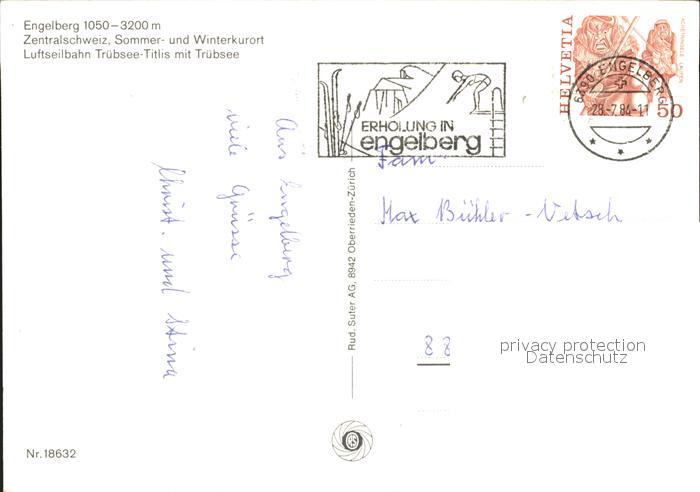 Engelberg 1050–3200 m
Zentralschweiz, Sommer- und Winterkurort
Luftseilbahn Trübsee-Titlis mit Trübsee
ERHOLUNG IN
engelberg
HELVETIA
50
6390 ENGELBERG
28.-7.84-11
Aus Engelberg
viele Grüsse
Christ. und Stina
Fam.
Max Bühler - Vetsch
88
privacy protection
Datenschutz
Rud. Suter AG, 8942 Oberrieden-Zürich
Nr. 18632